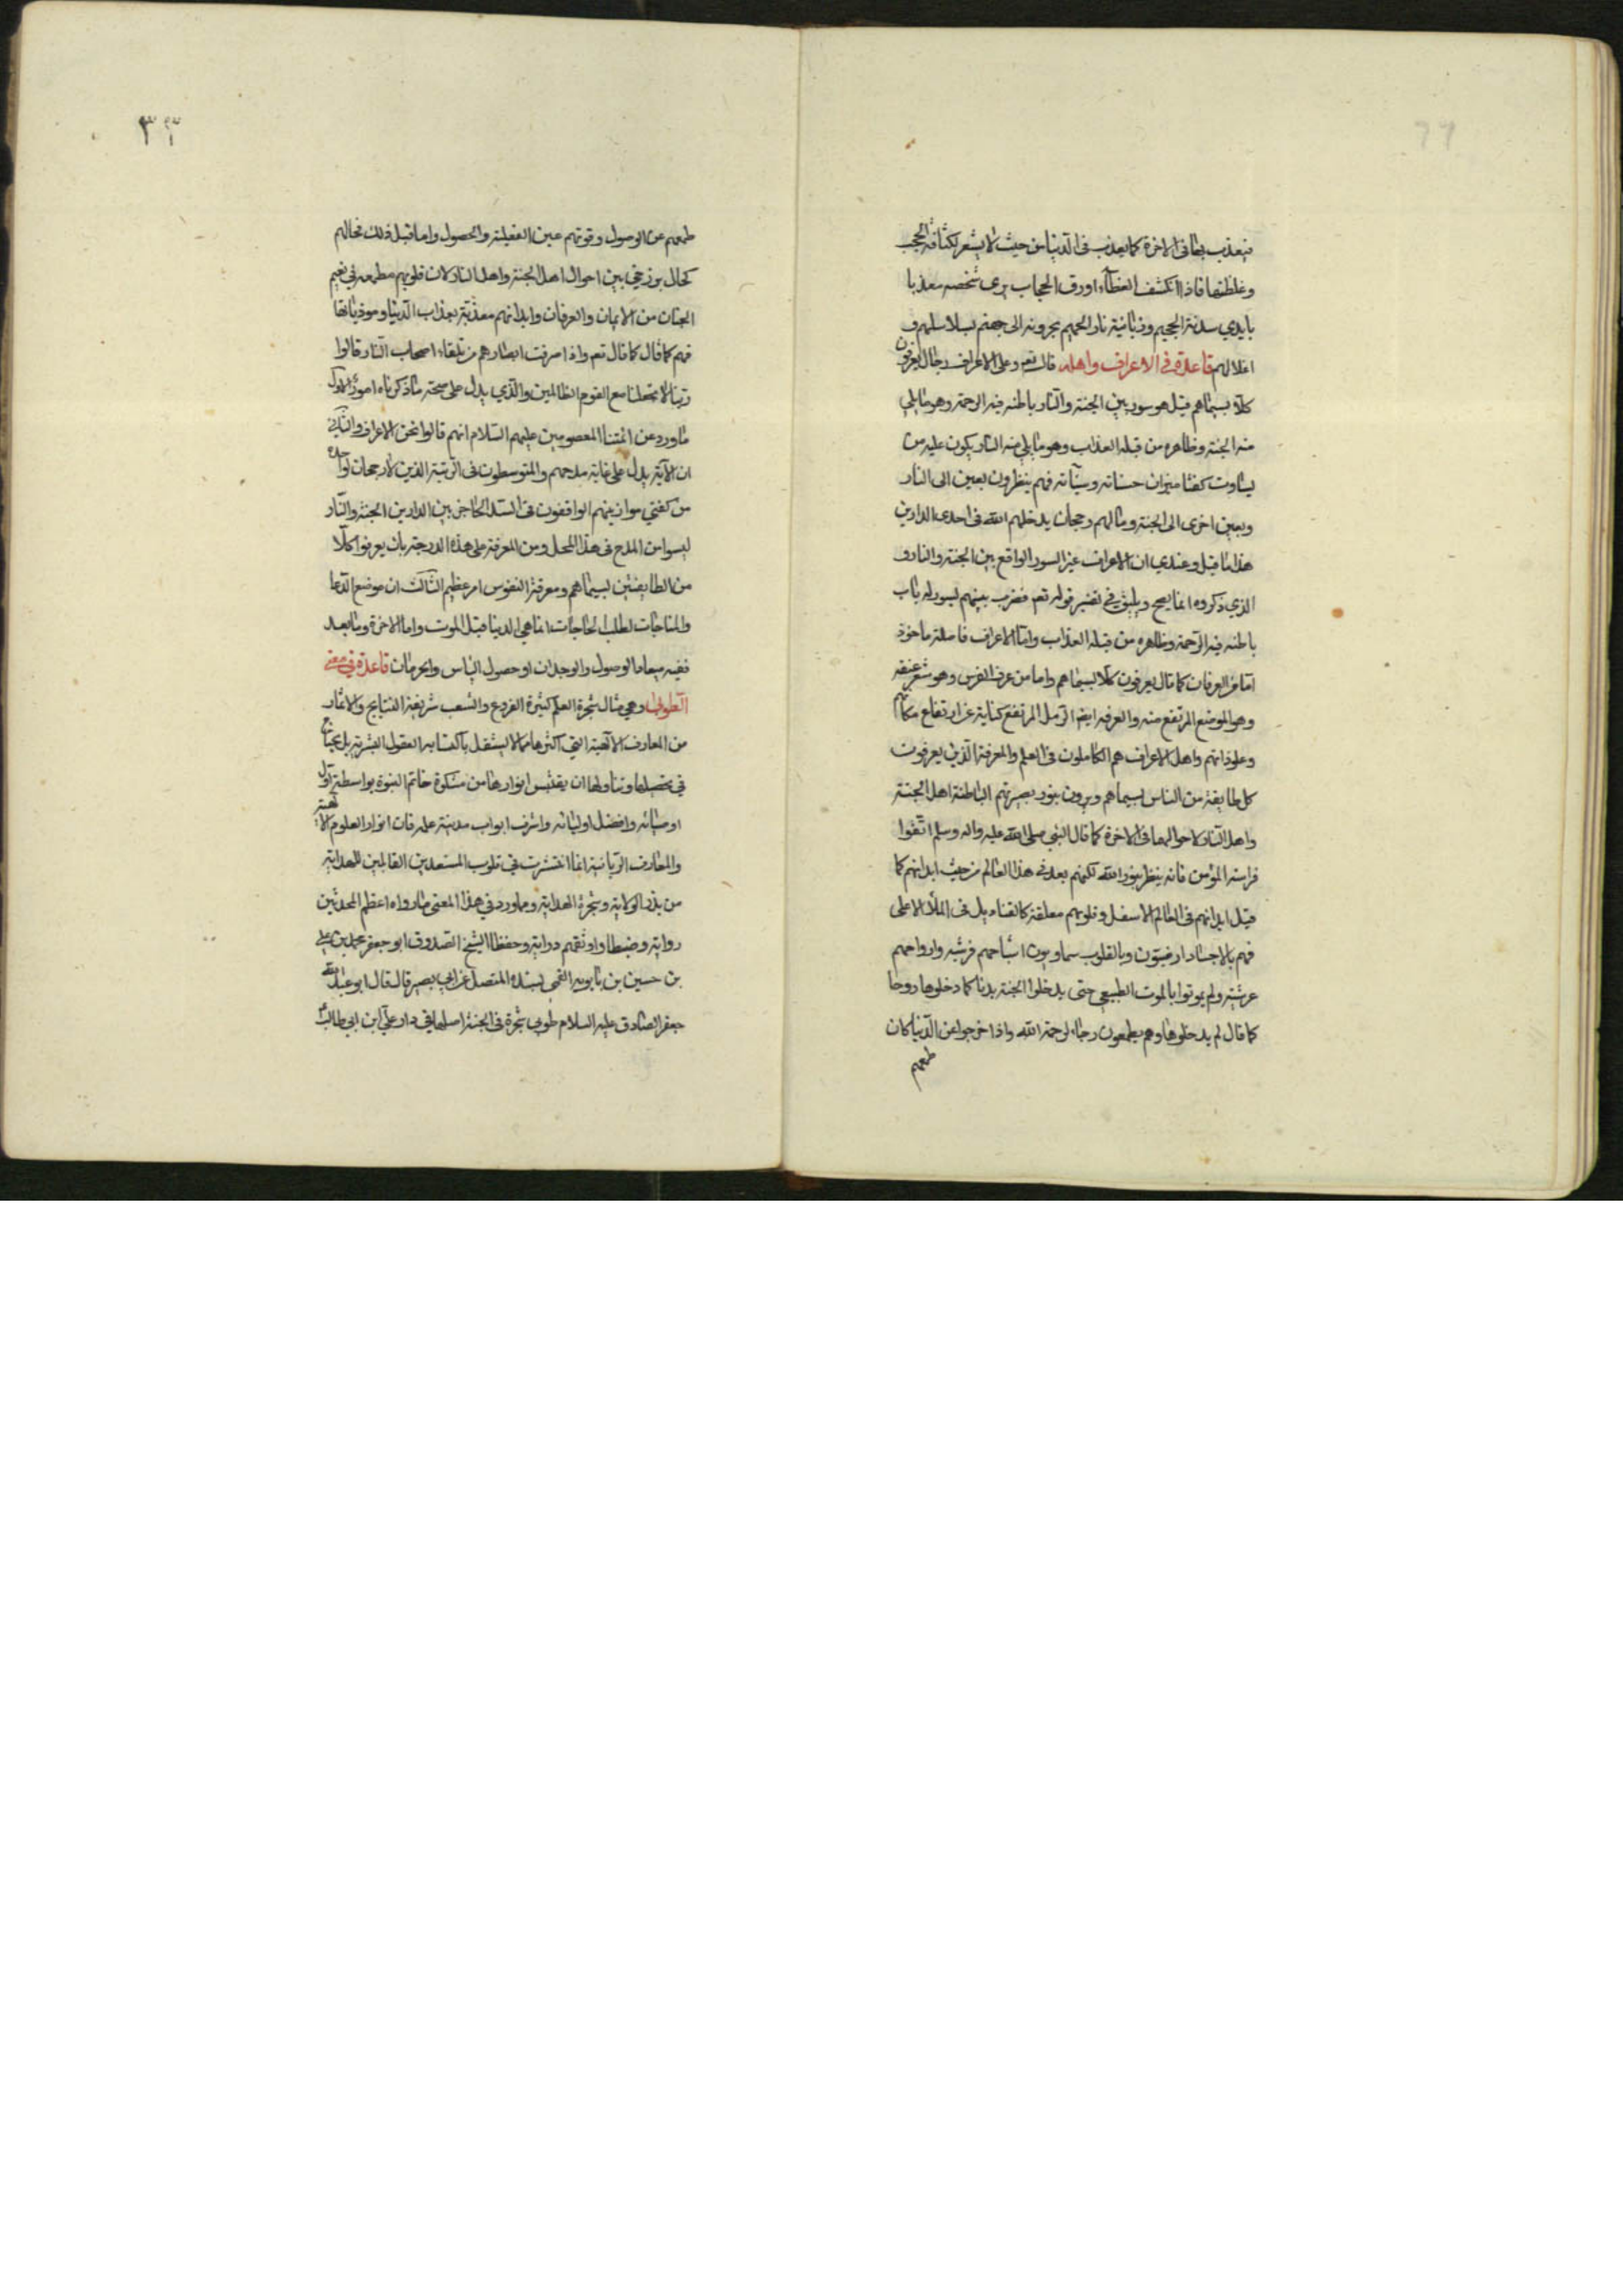 فيعذب بها فى الاخرة كما يعذب فى الدنيا من حيث لا يشعر لكثافة الحجب
وغلظتها فاذا انكشف الغطاء ورق الحجاب يرى شخصه معذبا
بايدي سدنة الجحيم وزبانية نار الحميم يجرونه الى جهنم بسلاسلهم و
اغلالهم قاعدة فى الاعراف واهله قال تعم وعلى الاعراف رجال يعرفون
كلا بسيماهم قيل هو سور بين الجنة والنار باطنه فيه الرحمة وهو ما يلي
منه الجنة وظاهره من قبله العذاب وهو ما يلي منه النار يكون عليه من
تساوت كفتا ميزان حسناته وسيآته فهم ينظرون بعين الى النار
وبعين اخرى الى الجنة وما لهم رجحان يدخلهم الله فى احدى الدارين
هذا ما قيل وعندي ان الاعراف غير السور الواقع بين الجنة والنار و
الذي ذكروه انما يصح ويليق فى تفسير قوله تعم فضرب بينهم بسور له باب
باطنه فيه الرحمة وظاهره من قبله العذاب واما الاعراف فاصله ماخوذ
اما من العرفان كما قال يعرفون كلا بسيماهم واما من عرف الفرس وهو شعر عنقه
وهو الموضع المرتفع منه والعرفه ايضا الرمل المرتفع كناية عن ارتفاع مكانهم
وعلو ذاتهم واهل الاعراف هم الكاملون فى العلم والمعرفة الذين يعرفون
كل طايفة من الناس بسيماهم ويرون بنور بصيرتهم الباطنة اهل الجنة
واهل النار لاحوالهما فى الاخرة كما قال النبي صلى الله عليه واله وسلم اتقوا
فراسة المؤمن فانه ينظر بنور الله لكنهم بعد فى هذا العالم من حيث ابدانهم كما
قيل ابدانهم فى العالم الاسفل وقلوبهم معلقة كالقناديل فى الملأ الاعلى
فهم بالاجساد ارضيون وبالقلوب سماويون اشباحهم فرشية وارواحهم
عرشية ولم يموتوا بالموت الطبيعي حتى يدخلوا الجنة بدنا كما دخلوها روحا
كما قال لم يدخلوها وهم يطمعون رجاء لرحمة الله واذا خرجوا عن الدنيا كان
طمعهم
٣٣
طمعهم عن الوصول وقوتهم عين الفعلية والحصول واما قبل ذلك فحالهم
كحال برزخي بين احوال اهل الجنة واهل النار لان قلوبهم مطمعه في نعيم
الجنان من الايمان والعرفان وابدانهم معذبة بعذاب الدنيا وموذياتها
فهم كما قال كما قال تعم واذا صرفت ابصارهم من تلقاء اصحاب النار قالوا
ربنا لا تجعلنا مع القوم الظالمين والذي يدل على صحة ما ذكرناه امور الاول
ما ورد عن ائمتنا المعصومين عليهم السلام انهم قالوا نحن الاعراف والثاني
ان الآية يدل على غاية مدحهم والمتوسطون فى الرتبة الذين لا رجحان لواحده
من كفتي موازينهم الواقفون فى السد الحاجز بين الدارين الجنة والنار
ليسوا من المدح فى هذا المحل ومن المعرفة على هذه الدرجة بان يعرفوا كلا
من الطايفتين بسيماهم ومعرفة النفوس امر عظيم الثالث ان موضع الدعا
والمناجات لطلب الحاجات انما هي الدنيا قبل الموت واما الاخرة وما بعد
ففيه ميعاد الوصول والوجدان او حصول الياس والحرمان قاعدة فى معنى
الطوبى وهي مثال شجرة العلم كثيرة الفروع والشعب شريفة النتايج والاثمار
من المعارف الالهية التي اكثرها مما لا يستقل باكتسابه العقول البشرية بل يحتاج
في تحصيلها وتناولها ان يقتبس انوارها من مشكوة خاتم النبوة بواسطة اول
اوصيائه وافضل اوليائه واشرف ابواب مدينة علمه فان انوار العلوم الالهية
والمعارف الربانية انما انتشرت في قلوب المستعدين القابلين للهداية
من بذر الولاية وشجرة الهداية ومما ورد في هذا المعنى ما رواه اعظم المحدثين
رواية وضبطا واوثقهم دراية وحفظا الشيخ الصدوق ابو جعفر محمد بن علي
بن حسين بن بابويه القمي بسنده المتصل عن ابي بصير قال قال ابو عبد الله
جعفر الصادق عليه السلام طوبى شجرة فى الجنة اصلها في دار علي ابن ابي طالب